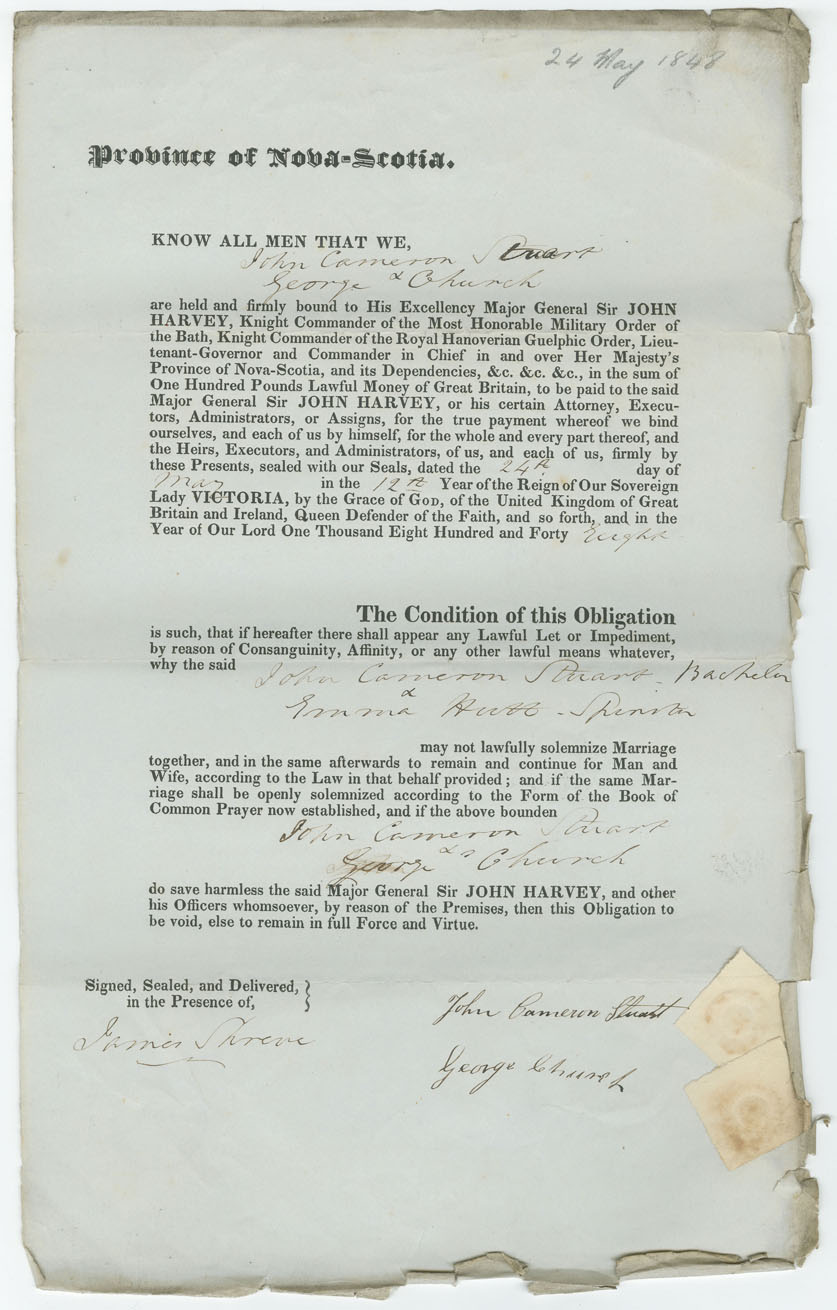 24 May 1848
Province of Nova-Scotia.
KNOW ALL MEN THAT WE,
John Cameron Stuart
&
George Church
are held and firmly bound to His Excellency Major General Sir JOHN
HARVEY, Knight Commander of the Most Honorable Military Order of
the Bath, Knight Commander of the Royal Hanoverian Guelphic Order, Lieu-
tenant-Governor and Commander in Chief in and over Her Majesty's
Province of Nova-Scotia, and its Dependencies, &c. &c. &c., in the sum of
One Hundred Pounds Lawful Money of Great Britain, to be paid to the said
Major General Sir JOHN HARVEY, or his certain Attorney, Execu-
tors, Administrators, or Assigns, for the true payment whereof we bind
ourselves, and each of us by himself, for the whole and every part thereof, and
the Heirs, Executors, and Administrators, of us, and each of us, firmly by
these Presents, sealed with our Seals, dated the 24th day of
May in the 12th Year of the Reign of Our Sovereign
Lady VICTORIA, by the Grace of GOD, of the United Kingdom of Great
Britain and Ireland, Queen Defender of the Faith, and so forth, and in the
Year of Our Lord One Thousand Eight Hundred and Forty Eight
The Condition of this Obligation
is such, that if hereafter there shall appear any Lawful Let or Impediment,
by reason of Consanguinity, Affinity, or any other lawful means whatever,
why the said John Cameron Stuart - Bachelor
&
Emma Hutt - Spinster
may not lawfully solemnize Marriage
together, and in the same afterwards to remain and continue for Man and
Wife, according to the Law in that behalf provided; and if the same Mar-
riage shall be openly solemnized according to the Form of the Book of
Common Prayer now established, and if the above bounden
John Cameron Stuart
&
George Church
do save harmless the said Major General Sir JOHN HARVEY, and other
his Officers whomsoever, by reason of the Premises, then this Obligation to
be void, else to remain in full Force and Virtue.
Signed, Sealed, and Delivered,
in the Presence of,
James Shreve
John Cameron Stuart
George Church